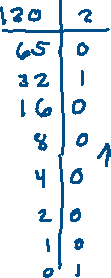 130 2
65 0
32 1
16 0
8 0
4 0
2 0
1 0
0 1